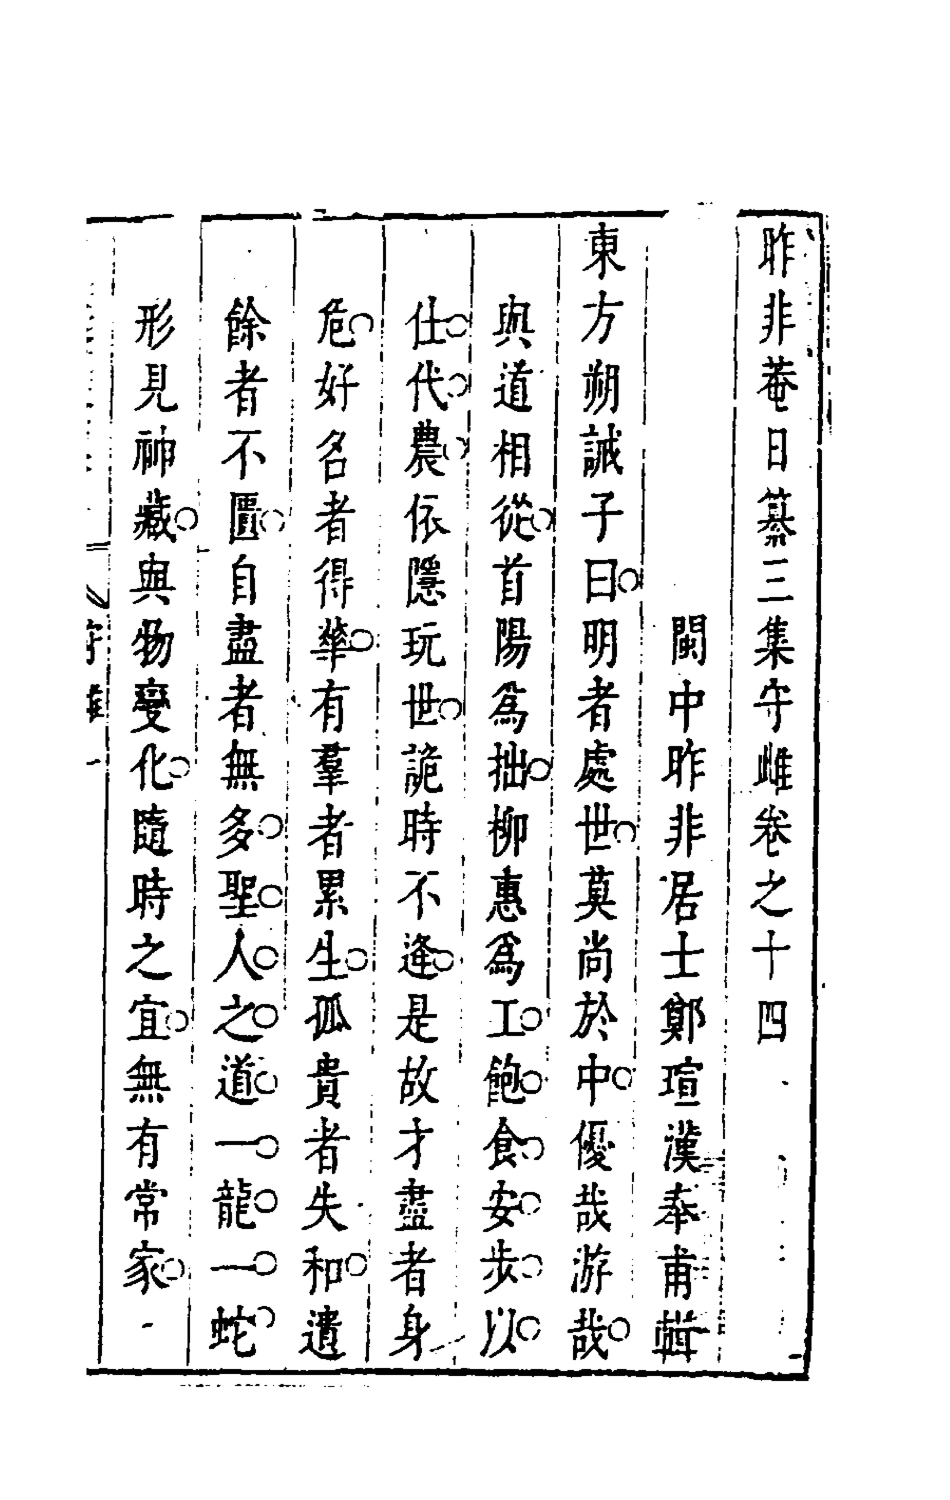 昨非菴日纂三集守雌卷之十四
閩中昨非居士鄭瑄漢奉甫輯
東方朔誡子曰明者處世莫尚於中優哉游哉
與道相從首陽爲拙柳惠爲工飽食安步以
仕代農依隱玩世詭時不逢是故才盡者身
危好名者得華有羣者累生孤貴者失和遺
餘者不匱自盡者無多聖人之道一龍一蛇
形見神藏與物變化隨時之宜無有常家